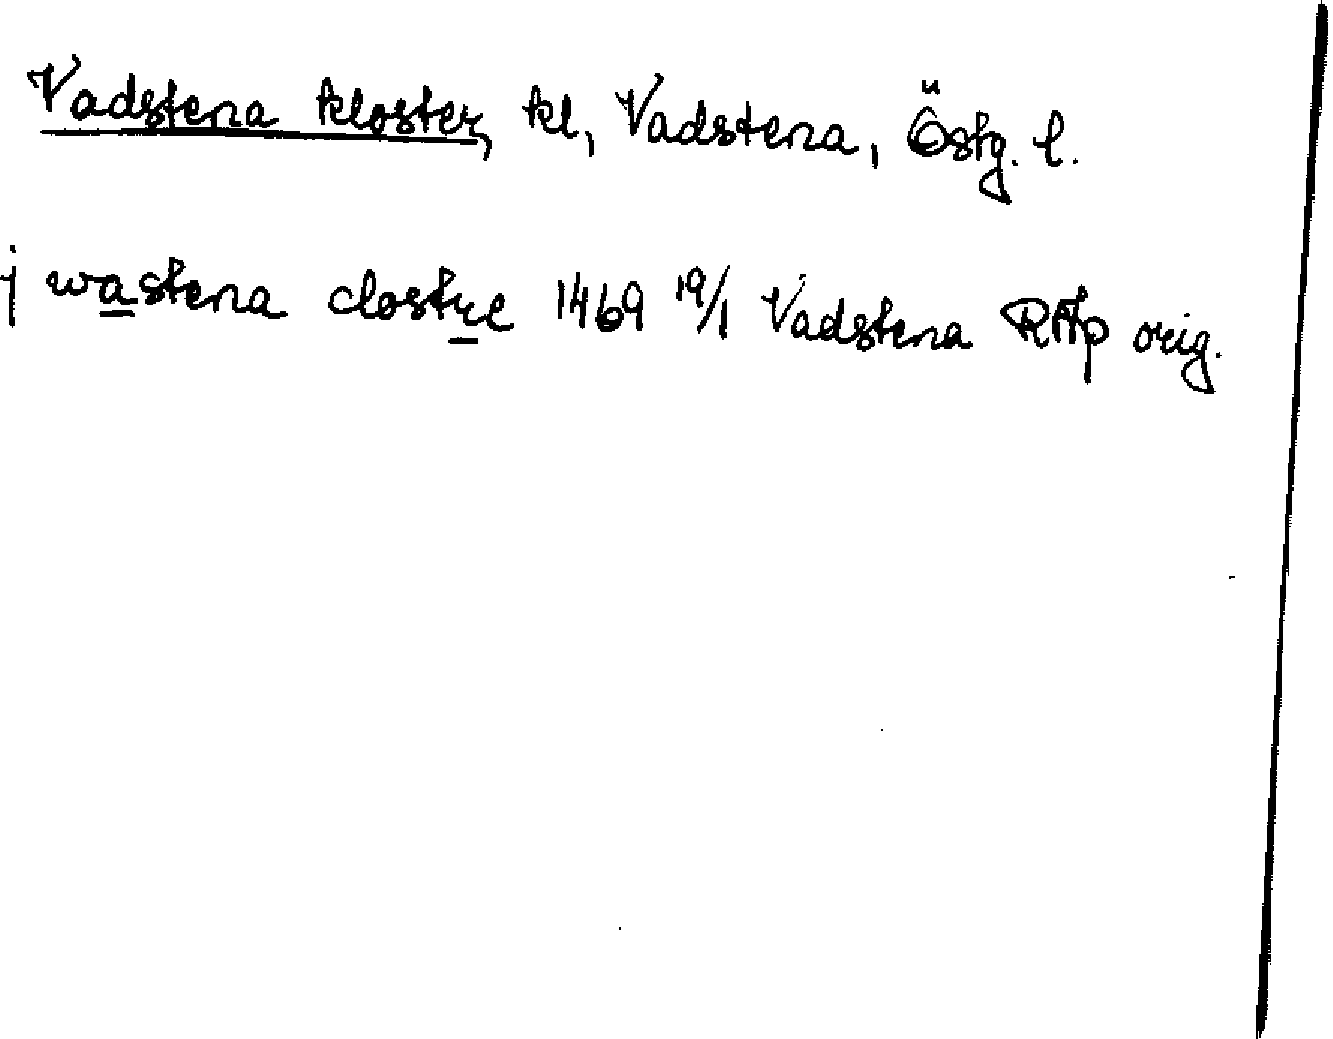 Vadstena kloster, kl, Vadstena, Östg. l.
j wastena clostre 1469 19/1 Vadstena RAp orig.